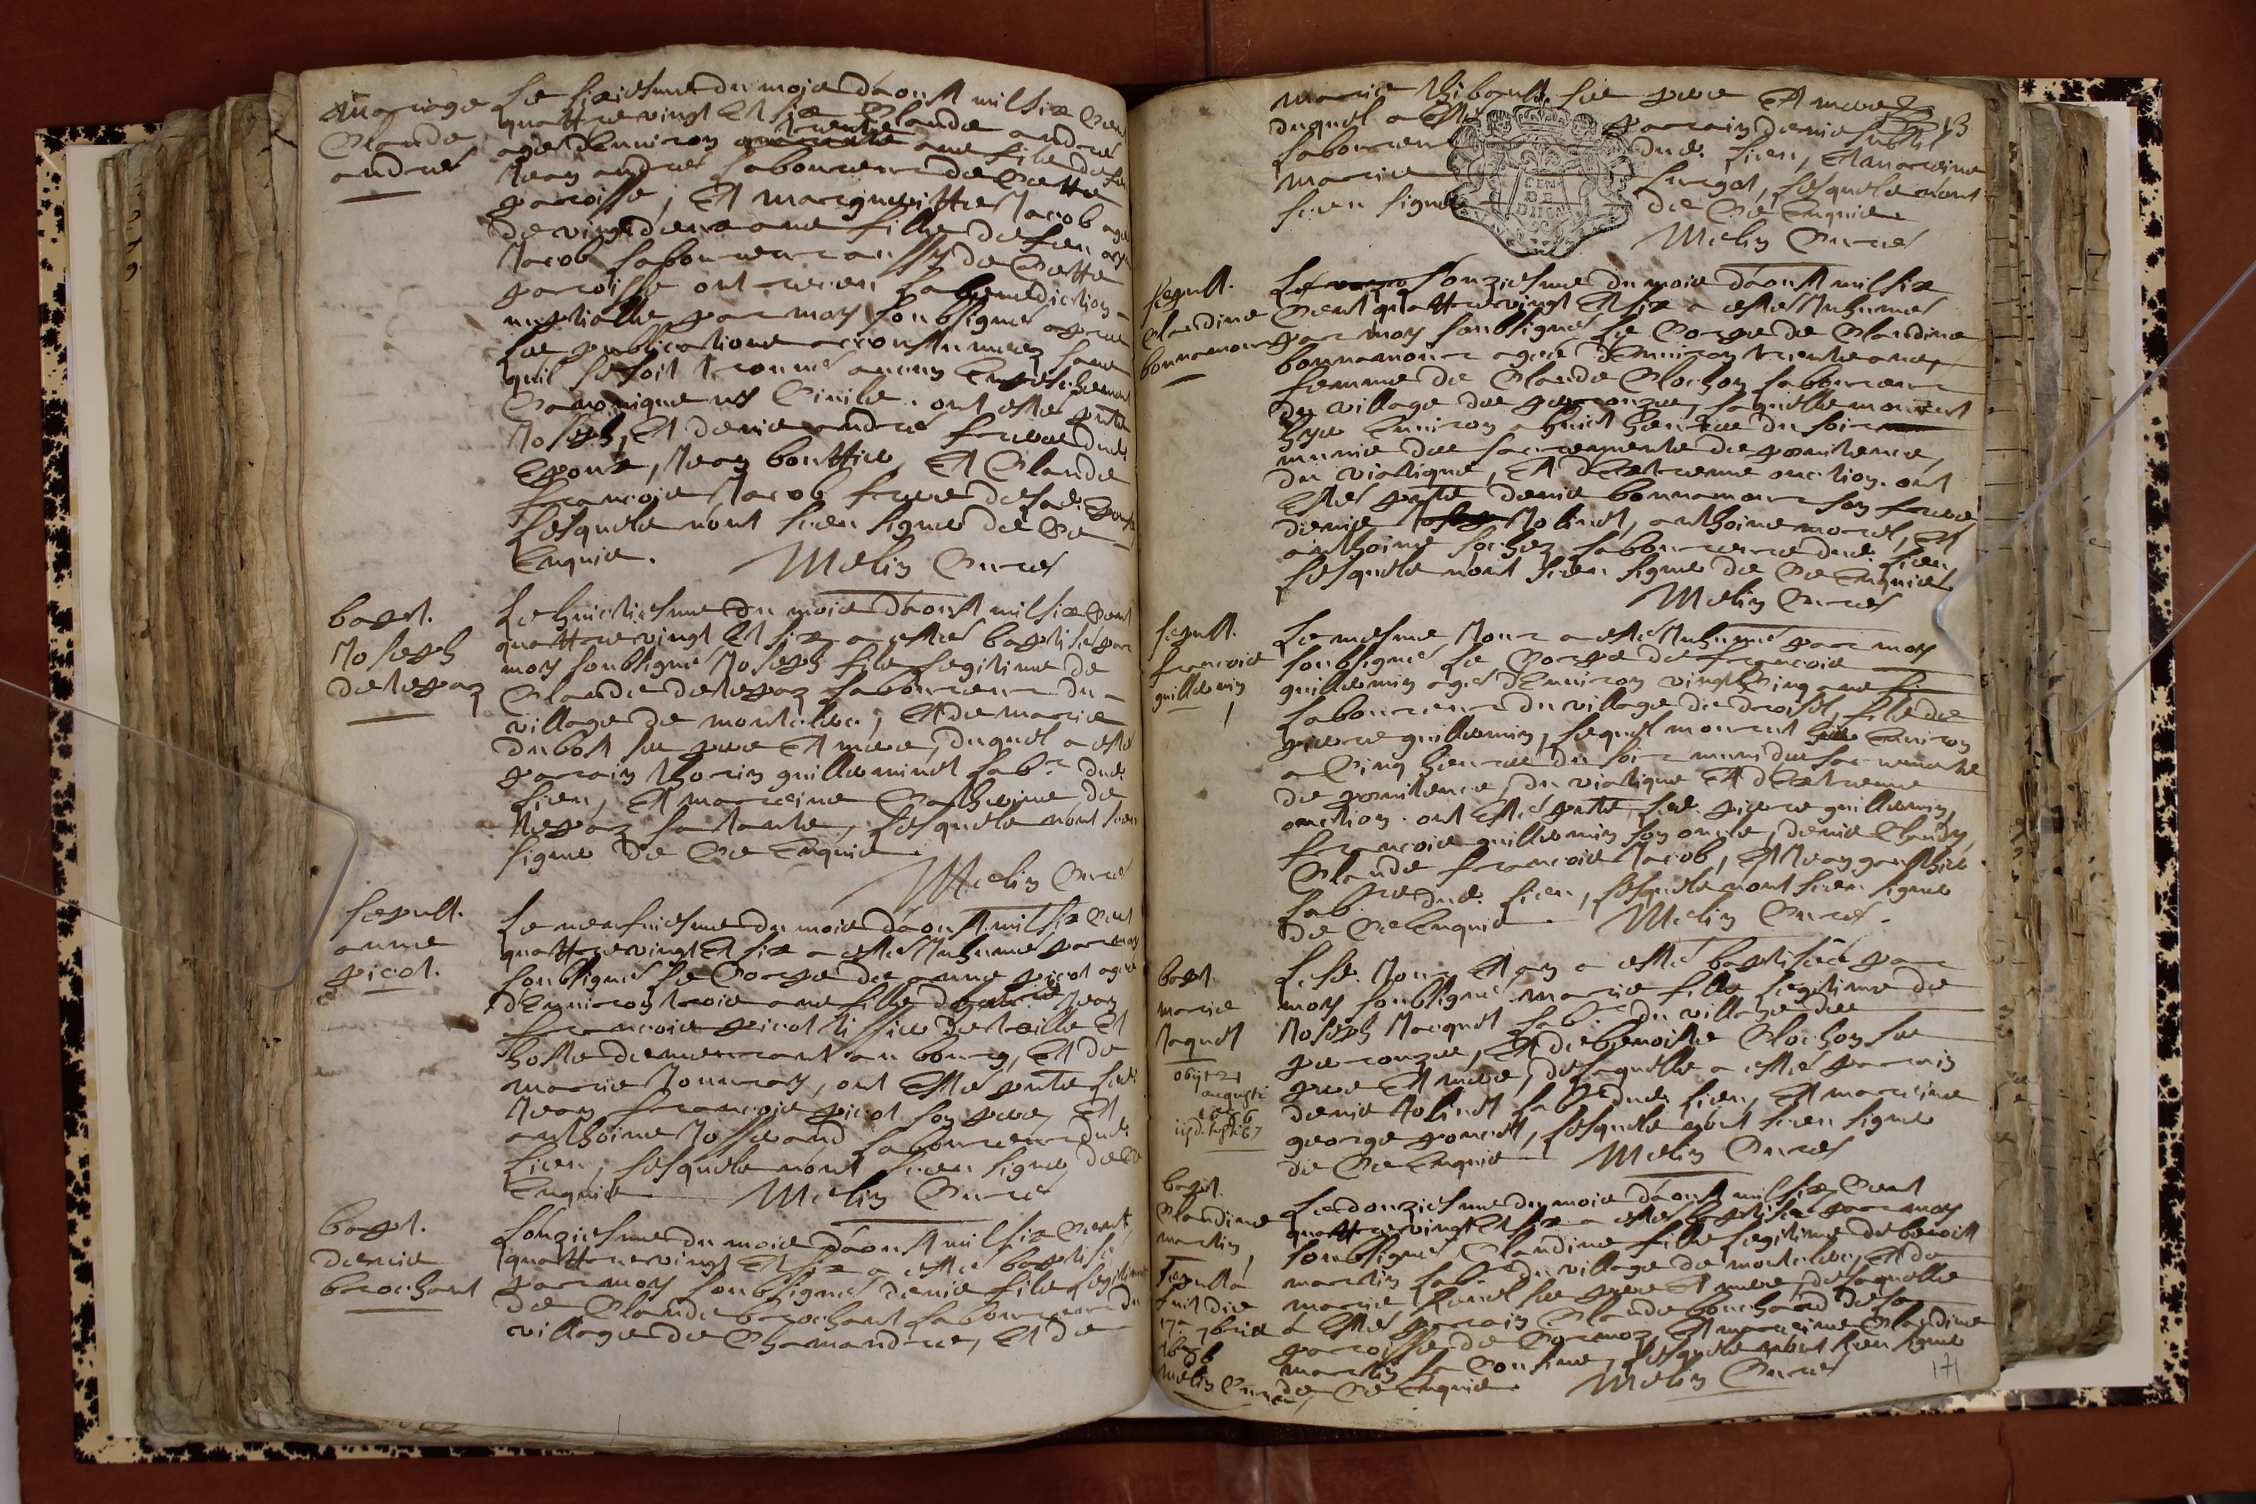 Mariage
Claude
andrés
Le sixiesme du moie d'aoust mil six Cent
quattrevingt Et six Claude andrés
agé d'Enuiron trente ans file de feu
Jean andrés laboureur de Cette
paroisse, Et margueritte Jacob agée
de vingt deux ans fille de feu
Jacob laboureur aussy de Cette
paroisse ont receu la benediction
nuptialle par moy soubsigné apres
les publications accoustumeez sans
quil se soit trouué aucun Empeschement
Canonique ny Ciuile. ont estés pnts
Joseph, Et denis andrés freres dud.
Epoux, Jean bouttier, Et Claude
francois Jacob frere de lad. Epouse
lesquels n'ont sceu signer de Ce
Enquis. Melin Curé
bapt.
Joseph
detepaz
Le huictiesme du mois d'aoust mil six Cent
quattrevingt Et six a estés baptisé par
moy soubsigné Joseph file legitime de
Claude detepaz laboureur du
village de montcler, Et de marie
dubost ses pere Et mere, duquel a esté
parain thorin guilleminot labr. dud.
lieu, Et mareine Catherine de
tepaz sa tante, lesquels n'ont sceu
signer de Ce Enquis.
Melin Curé
sepult.
anne
picot.
Le neufuiesme du mois d'aoust mil six Cent
quattrevingt Et six a estés Inhumés par moy
soubsigné le Corps de anne picot agée
d'Enuiron trois ans fille de Jean
francois picot tissier de toille Et
hoste demeurant au bourg, Et de
marie Jouuray, ont Estés pnts led.
Jean francois picot son pere, Et
anthoine Josserand laboureur dud.
lieu, lesquels n'ont sceu signer de Ce
Enquis Melin Curé
bapt.
denis
brochant
L'onziesme du mois d'aoust mil six Cent
quattrevingt Et six a esté baptisé
par moy soubsigné denis file legitime
de Claude brochant laboureur du
village de Chamandre, Et de
marie thibault ses pere Et mere
duquel a Estés parrain denis
laboureur dud. lieu, Et mareine
marie Furgot, lesquels n'ont
sceu signer de Ce Enquis.
Melin Curé
GEN
DE
DIJON
sepult.
Claudine
bonnamour
L'onziesme du mois d'aoust mil six
Cent quattrevingt Et six a estés Inhumés
par moy soubsigné le Corps de Claudine
bonnamour agée d'Enuiron trente ans,
femme de Claude Clochon laboureur
du village des perronzes, laquelle mourut
hyer Enuiron a huict heures du soir
munie des sacrements de penitence,
du viatique, Et d'Extreme onction. ont
Estés pnts denis bonnamour son frere
denis Jolinot, anthoine morel, Et
anthoine lochez laboureurs dud. lieu
lesquels n'ont sceu signer de Ce Enquis
Melin Curé
sepult.
francois
guillemin
Le mesme Jour a esté Inhumé par moy
soubsigné le Corps de francois
guillemin agé d'Enuiron vingt Cinq ans
laboureur du village de droisot, file de
pierre guillemin, lequel mourut hyer Enuiron
a Cinq heures du soir muni des sacrements
de penitence, du viatique Et d'Extreme
onction. ont estés pnts led. pierre guillemin,
francois guillemin son oncle, denis Claudy,
Claude francois Jacob, Et Jean gauthier
labrs. dud. lieu, lesquels n'ont sceu signer
de Ce Enquis. Melin Curé.
bapt.
marie
Jaquot
obijt 21
augusti
Led. Jour, Et an a esté baptisée par
moy soubsigné marie fille legitime de
Joseph Jacquot labr. du village des
perronzes, Et de benoitte Clochon ses
pere Et mere, de laquelle a estés parrain
denis Jolinot labr. dud. lieu, Et mareine
george poncet, lesquels n'ont sceu signer
de Ce Enquis Melin Curé
bapt.
Claudine
martin
Sepulta
fuit die
17a 7bris
1686
Melin Curé
Le douziesme du mois d'aoust mil six Cent
quattrevingt Et six a estés baptisée par moy
soubsigné Claudine fille legitime de benoist
martin labr. du village de montcler, Et de
marie ses pere Et mere, de laquelle
a Estés parrain Claude bouchard de la
paroisse de Cormoz, Et mareine Claudine
martin sa Cousine, lesquels n'ont sceu signer
de Ce Enquis. Melin Curé
171